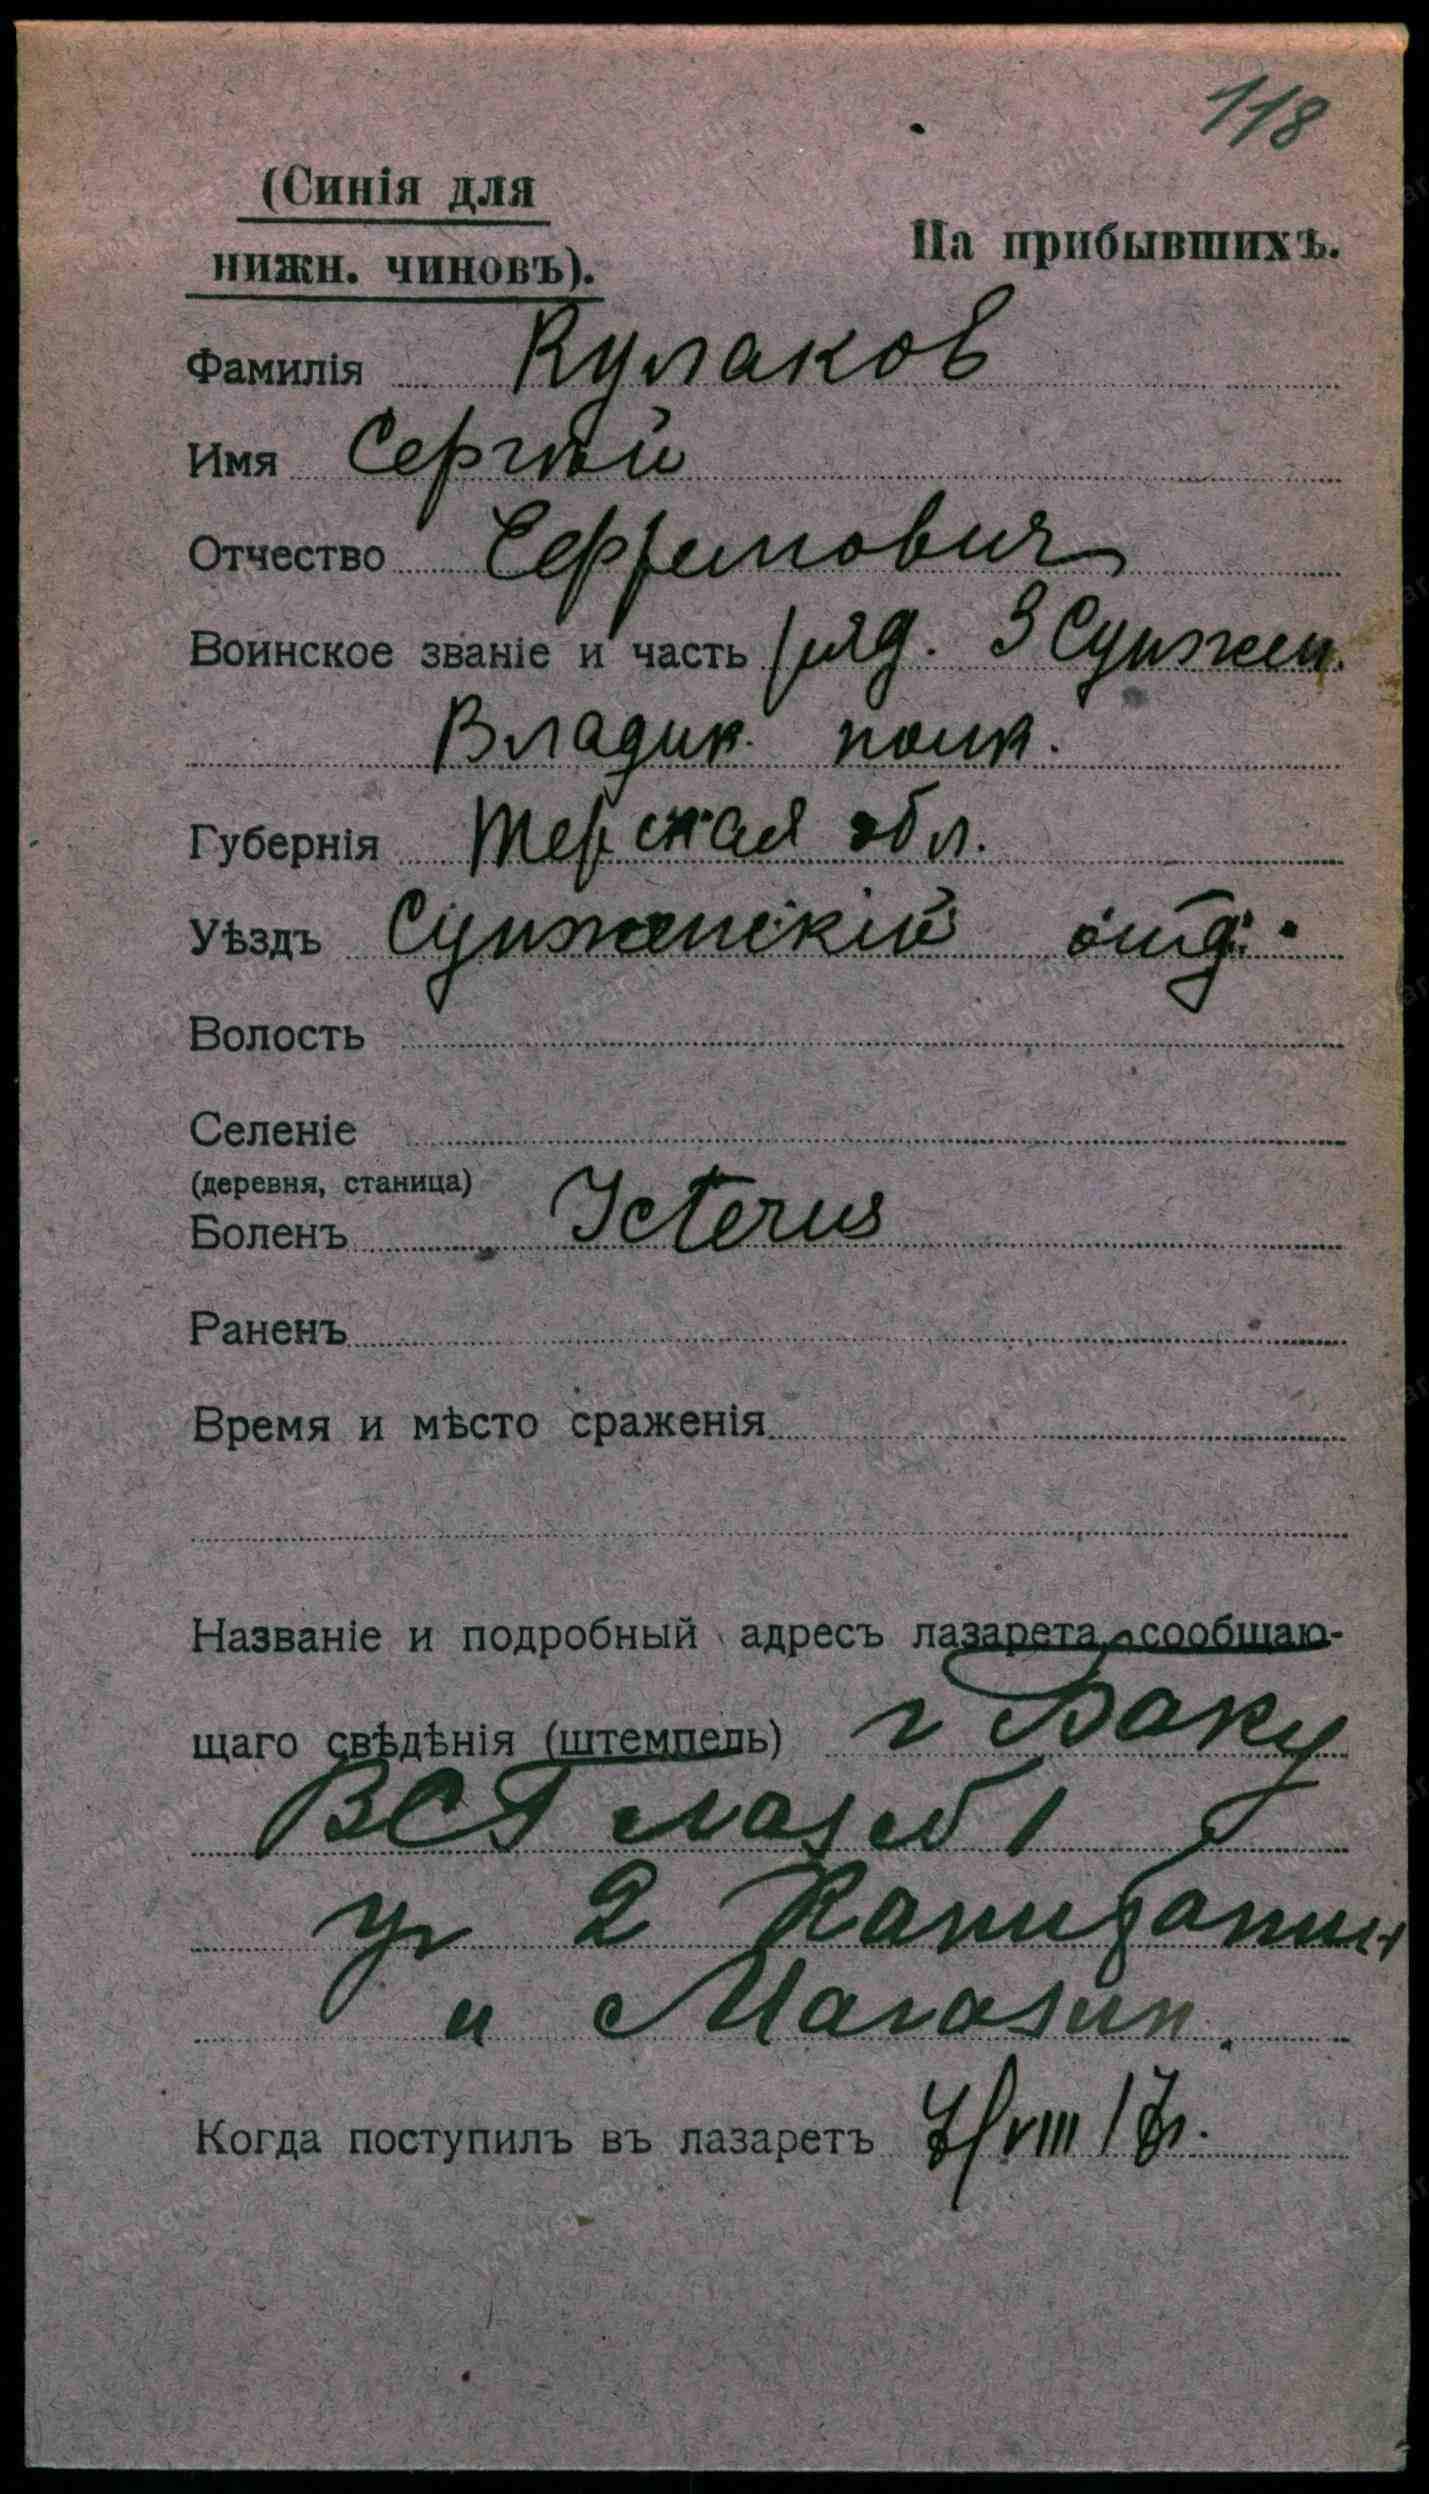 118
(Синія для
На прибывшихъ.
нижн. чиновъ).
Фамилія Кулаков
Имя Сергѣй
Отчество Ефремович
Воинское званіе и часть ряд. 3 Сунжен.
Владик. полк.
Губернія Терская обл.
Уѣздъ Сунженскій отд.
Волость
Селеніе
(деревня, станица)
Боленъ Icterus
Раненъ
Время и мѣсто сраженія
Названіе и подробный адресъ лазарета, сообщаю-
щаго свѣдѣнія (штемпель) г Баку
ВСГ лаз № 1
уг 2 Канитапин
и Магазин.
Когда поступилъ въ лазаретъ 7/VIII 17г.